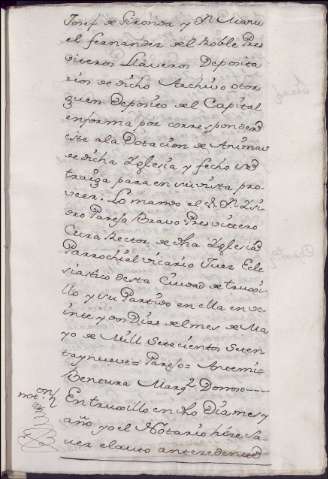 Josef de Gironda y Dn. Manu
el Fernandez del Roble Pres
viteros Llaveros Deposita
rios de dicho Archivo otor
guen Deposito del Capital
en forma por correspondenc
este a la Dotacion de Animas
de dicha Yglesia y fecho se
traiga para en su vista pro
veer: Lo mando el S. Dn.
dro Parejo Bravo Presvitero
Cura Rector de dha Yglesia
Parrochial vicario Juez Ecle
siastico de esta Ciudad de truxi
llo y su Partido en ella en ve
inte y un Dias del mes de Ma
yo de Mill Setecientos Seten
ta y nueve= Parejo= Antemi=
Denoura Marqz. Donoso
En truxillo en dho Dia mes y
año yo el Notario hize sa
ver el auto antezedente
not.